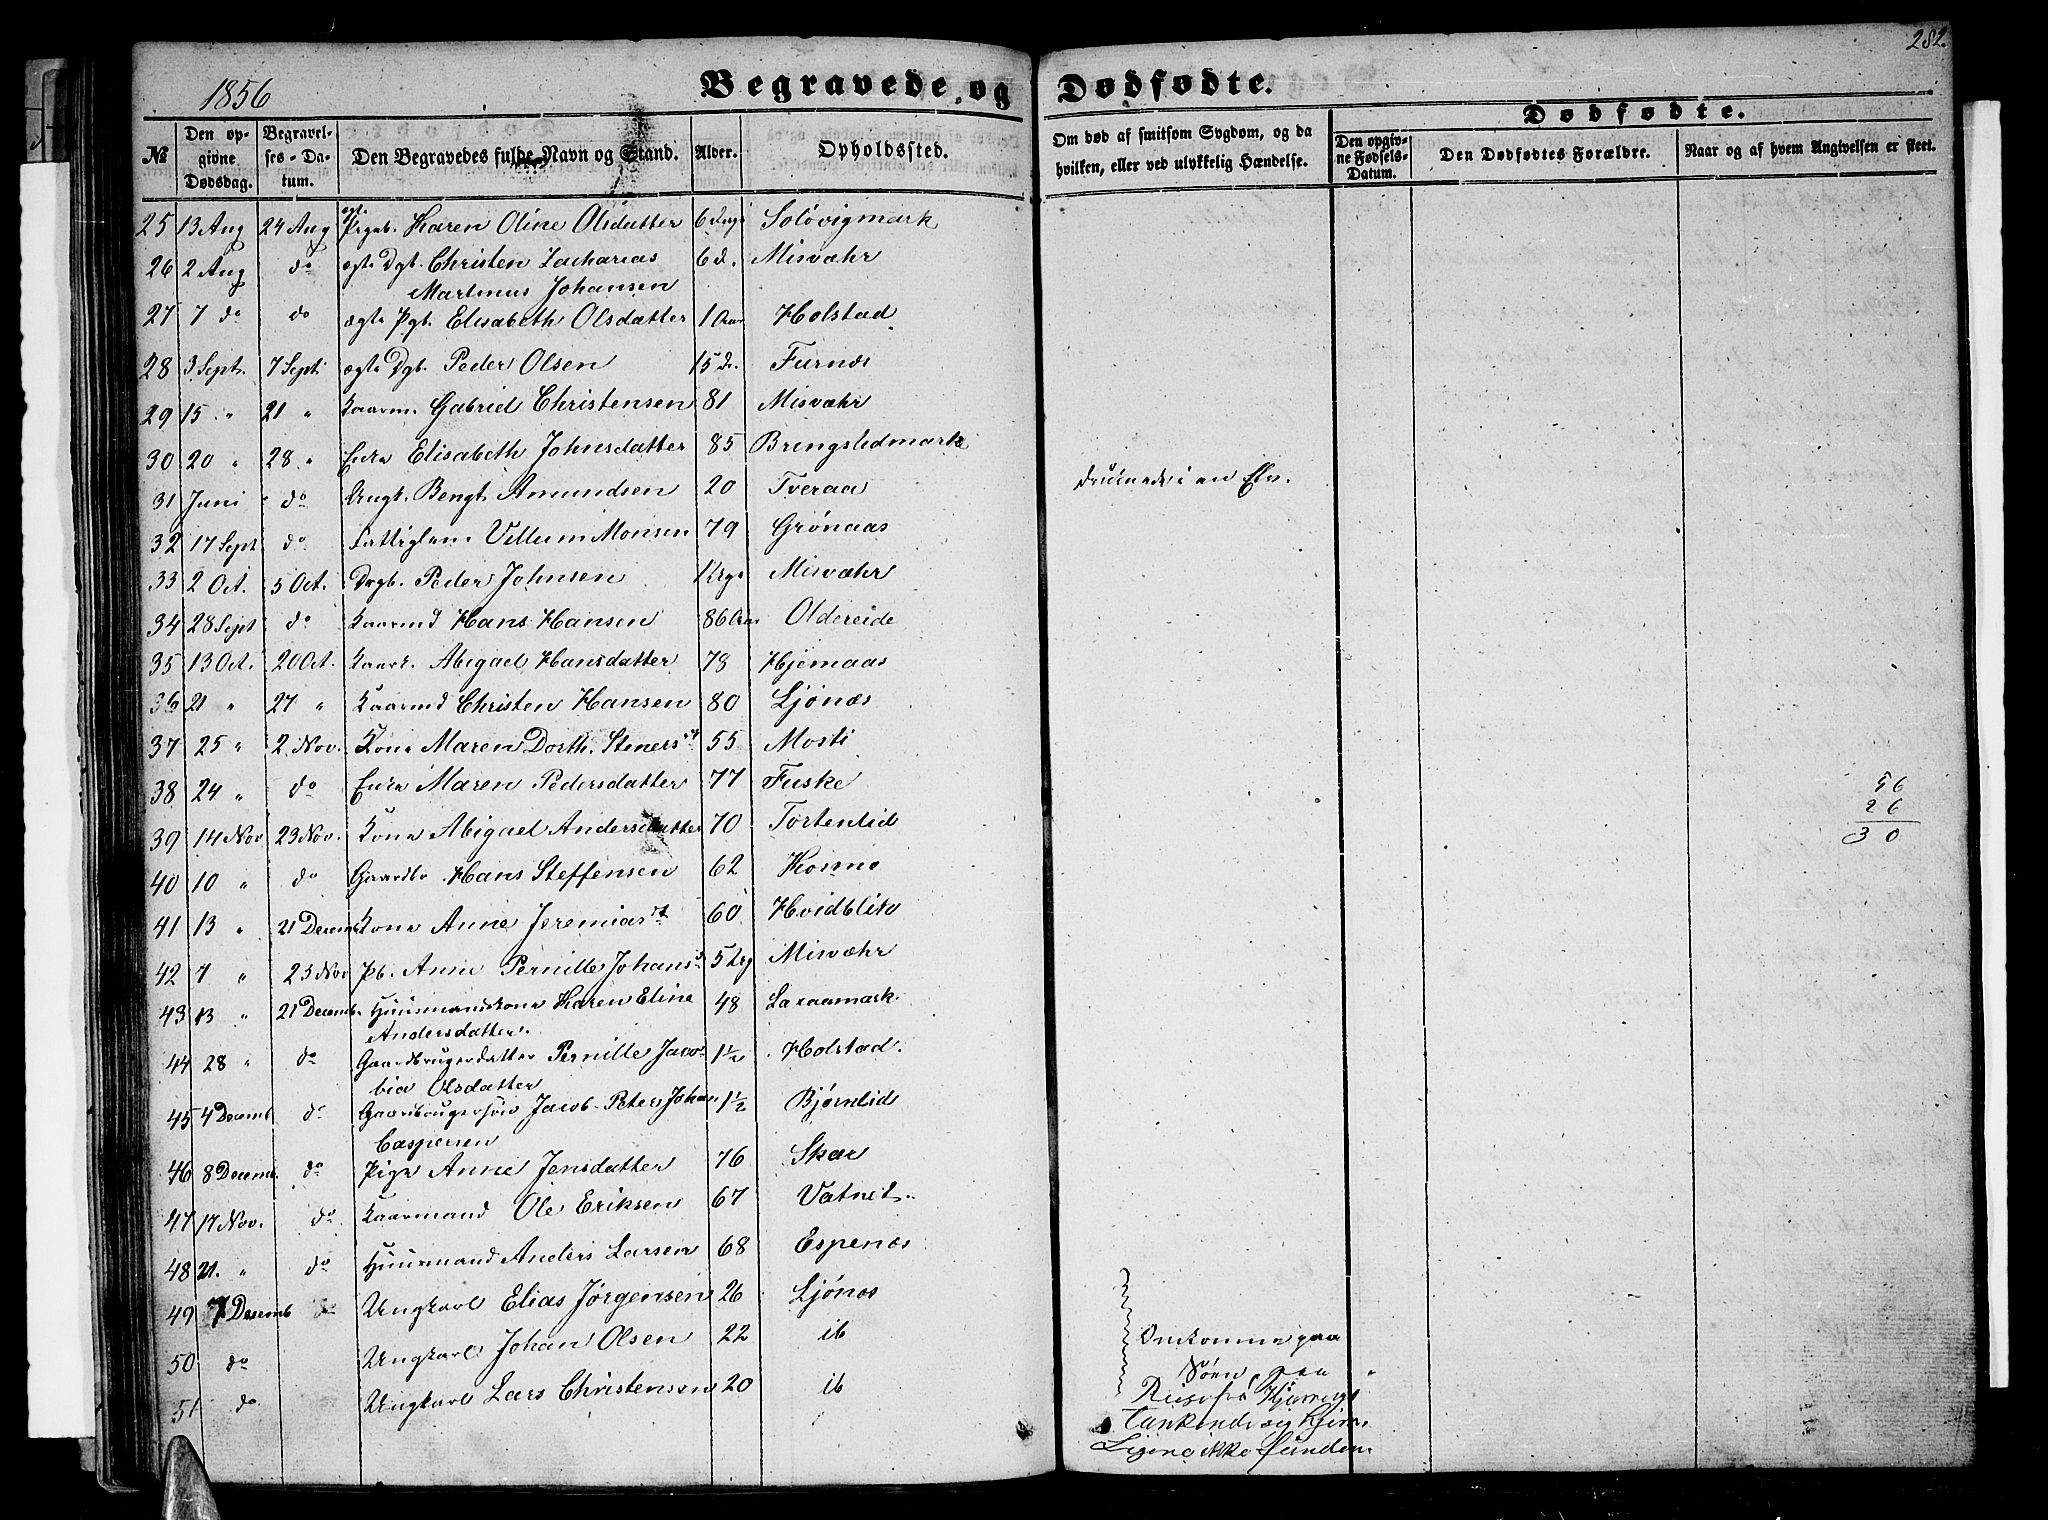 282.
1856
Begravede og Dødfødte.
Dødfødte.
№
Den opgivne Dødsdag.
Begravelses-Datum.
Den Begravedes fulde Navn og Stand.
Alder.
Opholdssted.
Om død af smitsom Sygdom, og da hvilken, eller ved ulykkelig Hændelse.
Den opgivne Fødsels-Datum.
Den Dødfødtes Forældre.
Naar og af hvem Angivelsen er skeet.
25 13 Aug 24 Aug ægte Pigeb. Karen Oline Olsdatter 6 Dage Soløvigmark
26 2 Aug do ægte Dgb. Christen Zacharias 6 d. Misvæhr
Martinus Johansen
27 7 do do ægte Pgb. Elisabeth Olsdatter 1 Aar Holstad
28 3 Sept. 7 Sept ægte Dgb. Peder Olsen 15 D. Furnæs
29 15 " 21 " Kaarm. Gabriel Christensen 81 Misvæhr
30 20 " 28 " Enke Elisabeth Johnsdatter 85 Bringslidmark
31 Juni do Ungk. Bengt Amundsen 20 Tveraa druknede i en Elv.
32 17 Sept do Fattiglem Villum Monsen 79 Grønaas
33 2 Oct. 5 Oct. Dgb. Peder Johnsen Misvæhr
34 28 Sept do Kaarmd Hans Hansen 86 Aar Oldereide
35 13 Oct. 20 Oct. Kaark. Abigael Hansdatter 78 Hjemaas
36 21 " 27 " Kaarmd Christen Hansen 80 Ljønæs
37 25 " 2 Nov. Kone Maren Dorth. Steners dt 55 Mosti
38 24 " do Enke Maren Pedersdatter 77 Fuske
39 14 Nov 23 Nov. Kone Abigael Andersdatter 70 Tortenlid
40 10 " do Gaardbr Hans Steffensen 62 Kosmo
41 13 " 21 Decemb Kone Anne Jeremias dt 60 Hvidblik
42 7 " 23 Nov Pb. Anne Pernille Johans d. 5 Misvæhr
43 13 " 21 Decemb. Huusmandskone Karen Eline 48 Laxaamark.
Andersdatter.
44 28 " do Gaardbrugerdatter Pernille Jaco- 1½ Holstad.
bia Olsdatter
45 4 Decemb do Gaardbrugersøn Jacob Peter Johan 1½ Bjørnlid
Caspersen
46 8 Decemb. do Pige Anne Jensdatter 76 Skar
47 17 Nov. do Kaarmand Ole Eriksen 67 Vatnet.
48 21. " do Huusmand Anders Larsen 68 Espenæs
49 7 Decemb do Ungkarl Elias Jørgensen 26 Ljønæs
50 do Ungkarl Johan Olsen 22 ib
51 do Ungkarl Lars Christensen 20 ib
Omkomne paa
Søen, paa
Reise fra
Ligene ikke funden.
56
26
30